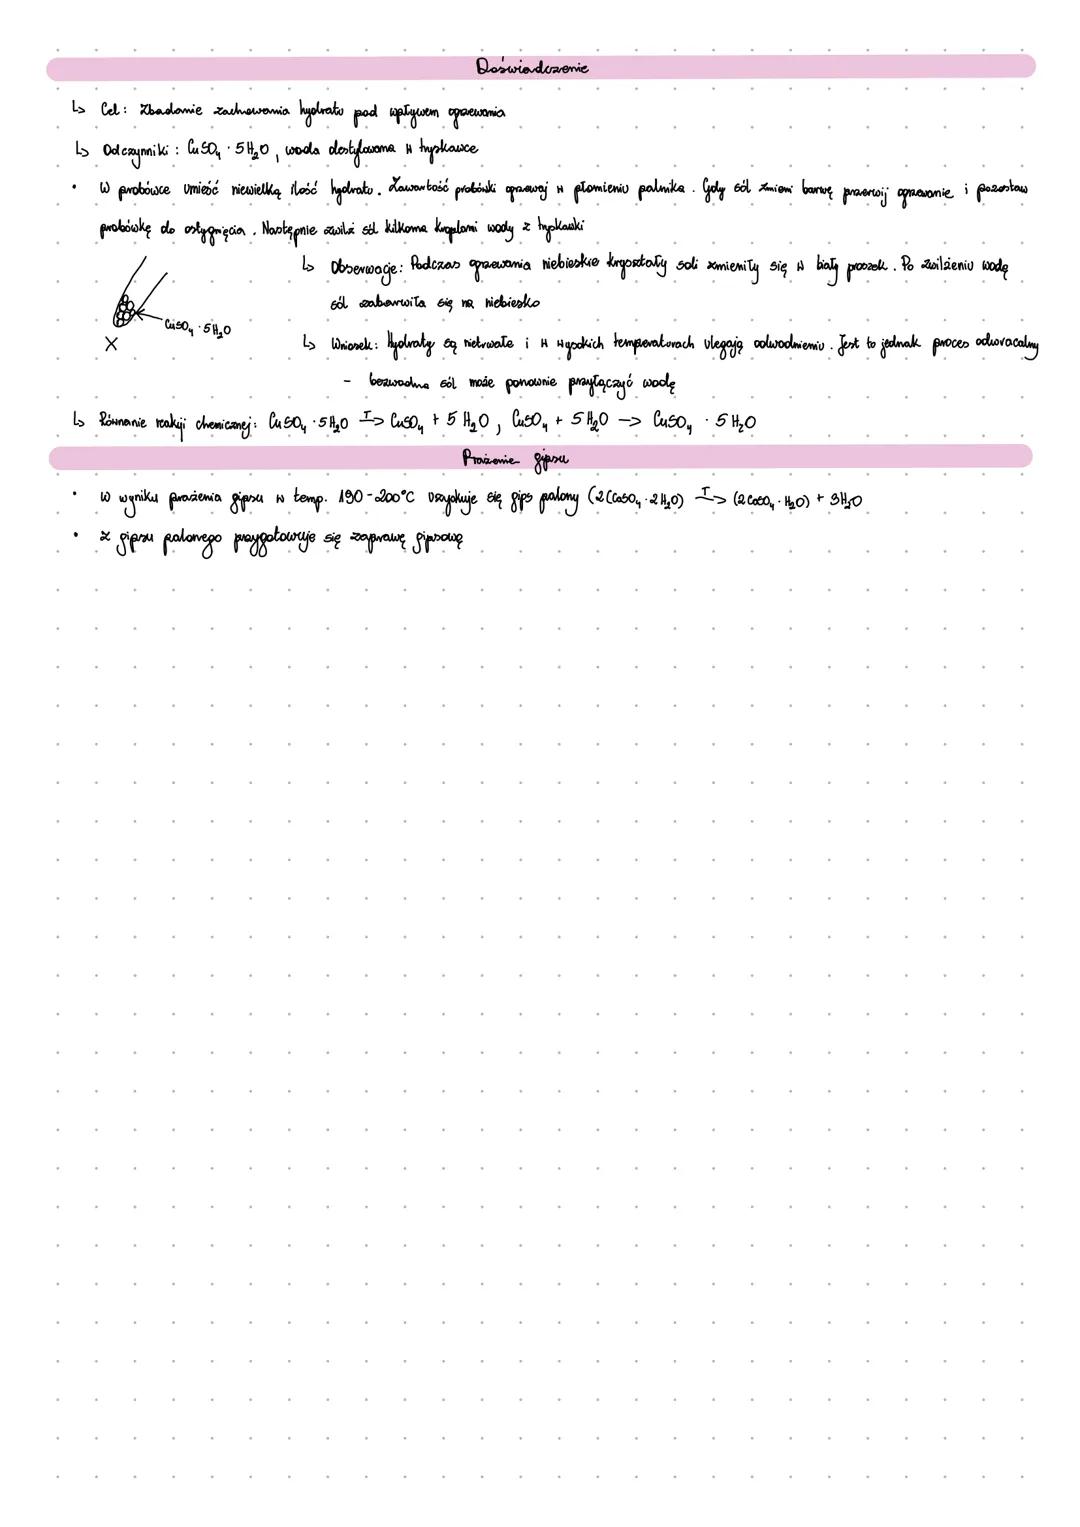 Doświadczenie
↳ Cel: Zbadanie zachowania hydratu pod wpływem ogrzewania
↳ Odczynniki: CuSO₄ · 5H₂O, woda destylowana w tryskawce
• W probówce umieść niewielką ilość hydratu. Zawartość probówki ogrzewaj w płomieniu palnika. Gdy sól zmieni barwę przerwij ogrzewanie i pozostaw
probówkę do ostygnięcia. Następnie zwilż sól kilkoma kroplami wody z tryskawki
↳ Obserwacje: Podczas ogrzewania niebieskie kryształy soli zmieniły się w biały proszek. Po zwilżeniu wodą
sól zabarwiła się na niebiesko
CuSO₄ · 5H₂O
X
↳ Wniosek: Hydraty są nietrwałe i w wysokich temperaturach ulegają odwodnieniu. Jest to jednak proces odwracalny
- bezwodna sól może ponownie przyłączyć wodę
↳ Równanie reakcji chemicznej: CuSO₄ · 5H₂O –T–> CuSO₄ + 5H₂O, CuSO₄ + 5H₂O –> CuSO₄ · 5H₂O
Prażenie gipsu
• W wyniku prażenia gipsu w temp. 190-200°C uzyskuje się gips palony (2(CaSO₄ · 2H₂O) –T–> (2CaSO₄ · H₂O) + 3H₂O
• Z gipsu palonego przygotowuje się zaprawę gipsową